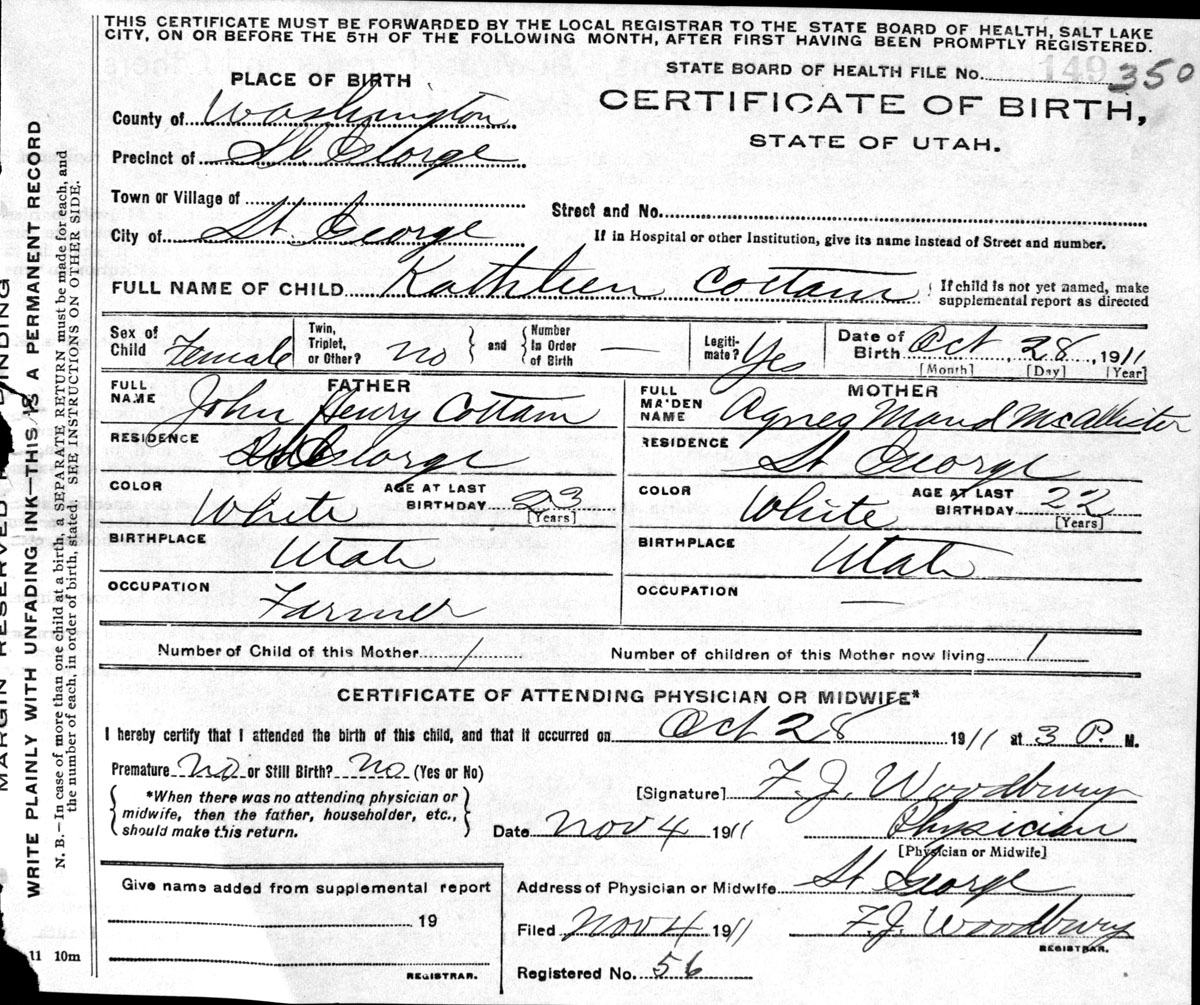 THIS CERTIFICATE MUST BE FORWARDED BY THE LOCAL REGISTRAR TO THE STATE BOARD OF HEALTH, SALT LAKE
CITY, ON OR BEFORE THE 5TH OF THE FOLLOWING MONTH, AFTER FIRST HAVING BEEN PROMPTLY REGISTERED.
STATE BOARD OF HEALTH FILE No. 149 350
PLACE OF BIRTH
CERTIFICATE OF BIRTH,
STATE OF UTAH.
County of Washington
Precinct of St George
Town or Village of
Street and No.
City of St. George
If in Hospital or other Institution, give its name instead of Street and number.
FULL NAME OF CHILD Kathleen Cottam { If child is not yet named, make
supplemental report as directed
Sex of Child Female
Twin, Triplet, or Other? no } and { Number In Order of Birth —
Legiti-mate? Yes
Date of Birth Oct 28, 1911
[Month] [Day] [Year]
FATHER
MOTHER
FULL NAME John Henry Cottam
FULL MA'DEN NAME Agnes Maud McAllister
RESIDENCE St George
RESIDENCE St George
COLOR White AGE AT LAST BIRTHDAY 23 [Years]
COLOR White AGE AT LAST BIRTHDAY 22 [Years]
BIRTHPLACE Utah
BIRTHPLACE Utah
OCCUPATION Farmer
OCCUPATION —
Number of Child of this Mother 1 Number of children of this Mother now living 1
CERTIFICATE OF ATTENDING PHYSICIAN OR MIDWIFE*
I hereby certify that I attended the birth of this child, and that it occurred on Oct 28 1911 at 3 P. M.
Premature no or Still Birth? no (Yes or No)
{ *When there was no attending physician or
midwife, then the father, householder, etc.,
should make this return. }
[Signature] F. J. Woodbury
Date Nov 4 1911 Physician
[Physician or Midwife]
Give name added from supplemental report
19
REGISTRAR.
Address of Physician or Midwife St George
Filed Nov 4 1911 F. J. Woodbury
REGISTRAR.
Registered No. 56
MARGIN RESERVED BINDING
WRITE PLAINLY WITH UNFADING INK—THIS IS A PERMANENT RECORD
N. B.—In case of more than one child at a birth, a SEPARATE RETURN must be made for each, and
the number of each, in order of birth, stated. SEE INSTRUCTIONS ON OTHER SIDE.
11 10m